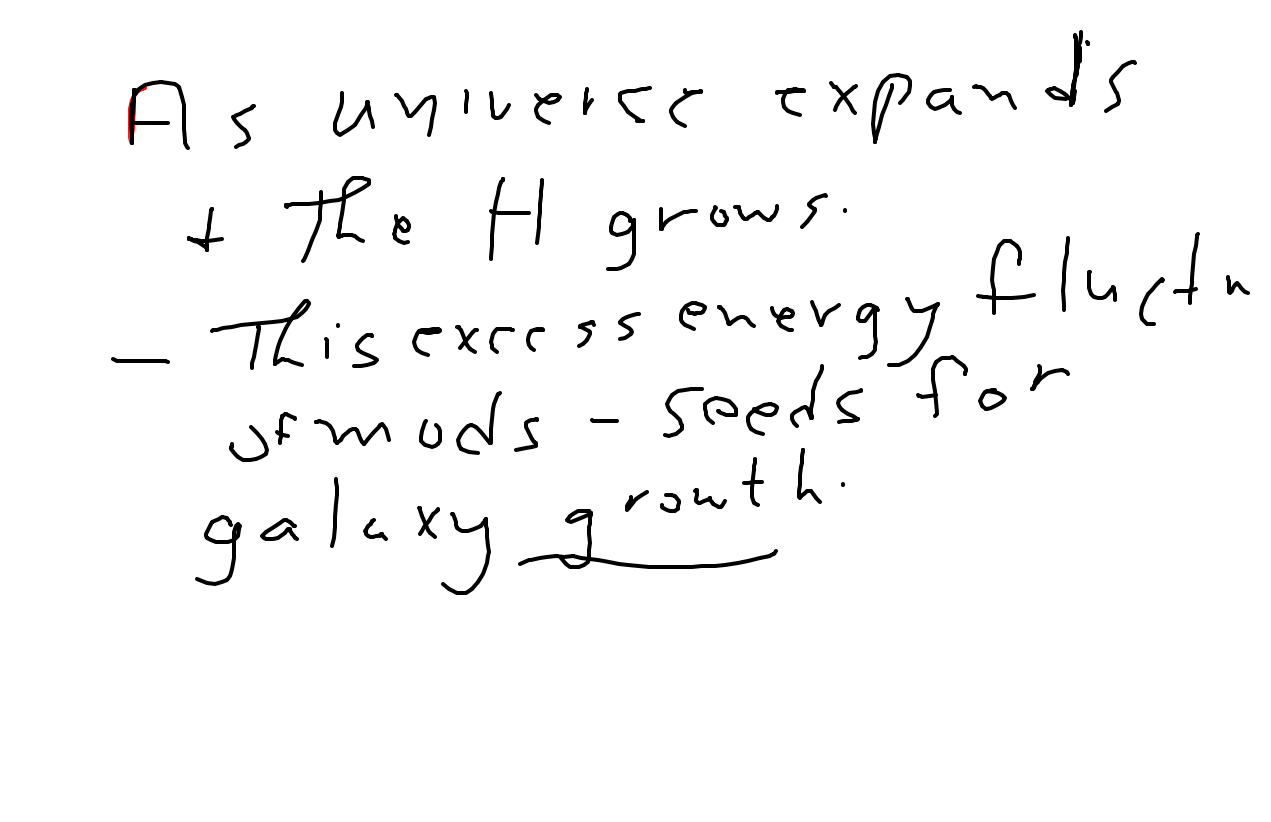 As universe expands
+ The H grows.
- This excess energy fluctn
of mods - seeds for
galaxy growth.